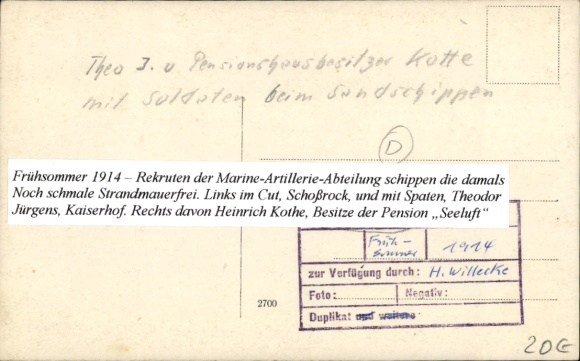 Theo J. u Pensionshausbesitzer Kotte
mit Soldaten beim Sandschippen
D
Frühsommer 1914 – Rekruten der Marine-Artillerie-Abteilung schippen die damals
Noch schmale Strandmauerfrei. Links im Cut, Schoßrock, und mit Spaten, Theodor
Jürgens, Kaiserhof. Rechts davon Heinrich Kothe, Besitze der Pension „Seeluft“
Früh-
sommer
1914
zur Verfügung durch: H. Willecke
Foto: Negativ:
Duplikat und weitere
2700
20G